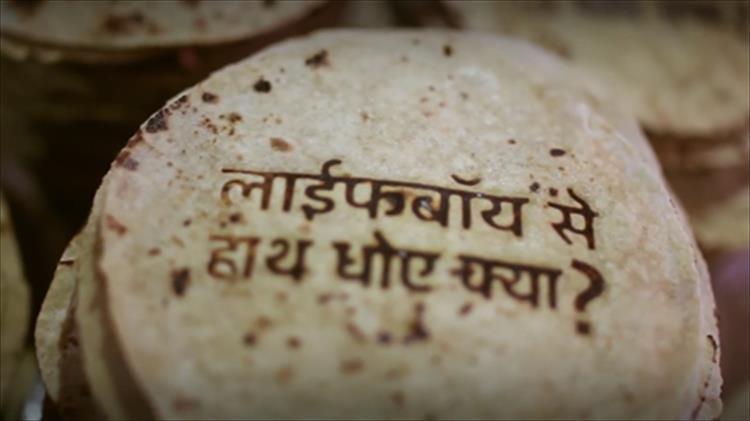 लाईफबॉय से
हाथ धोए क्या?